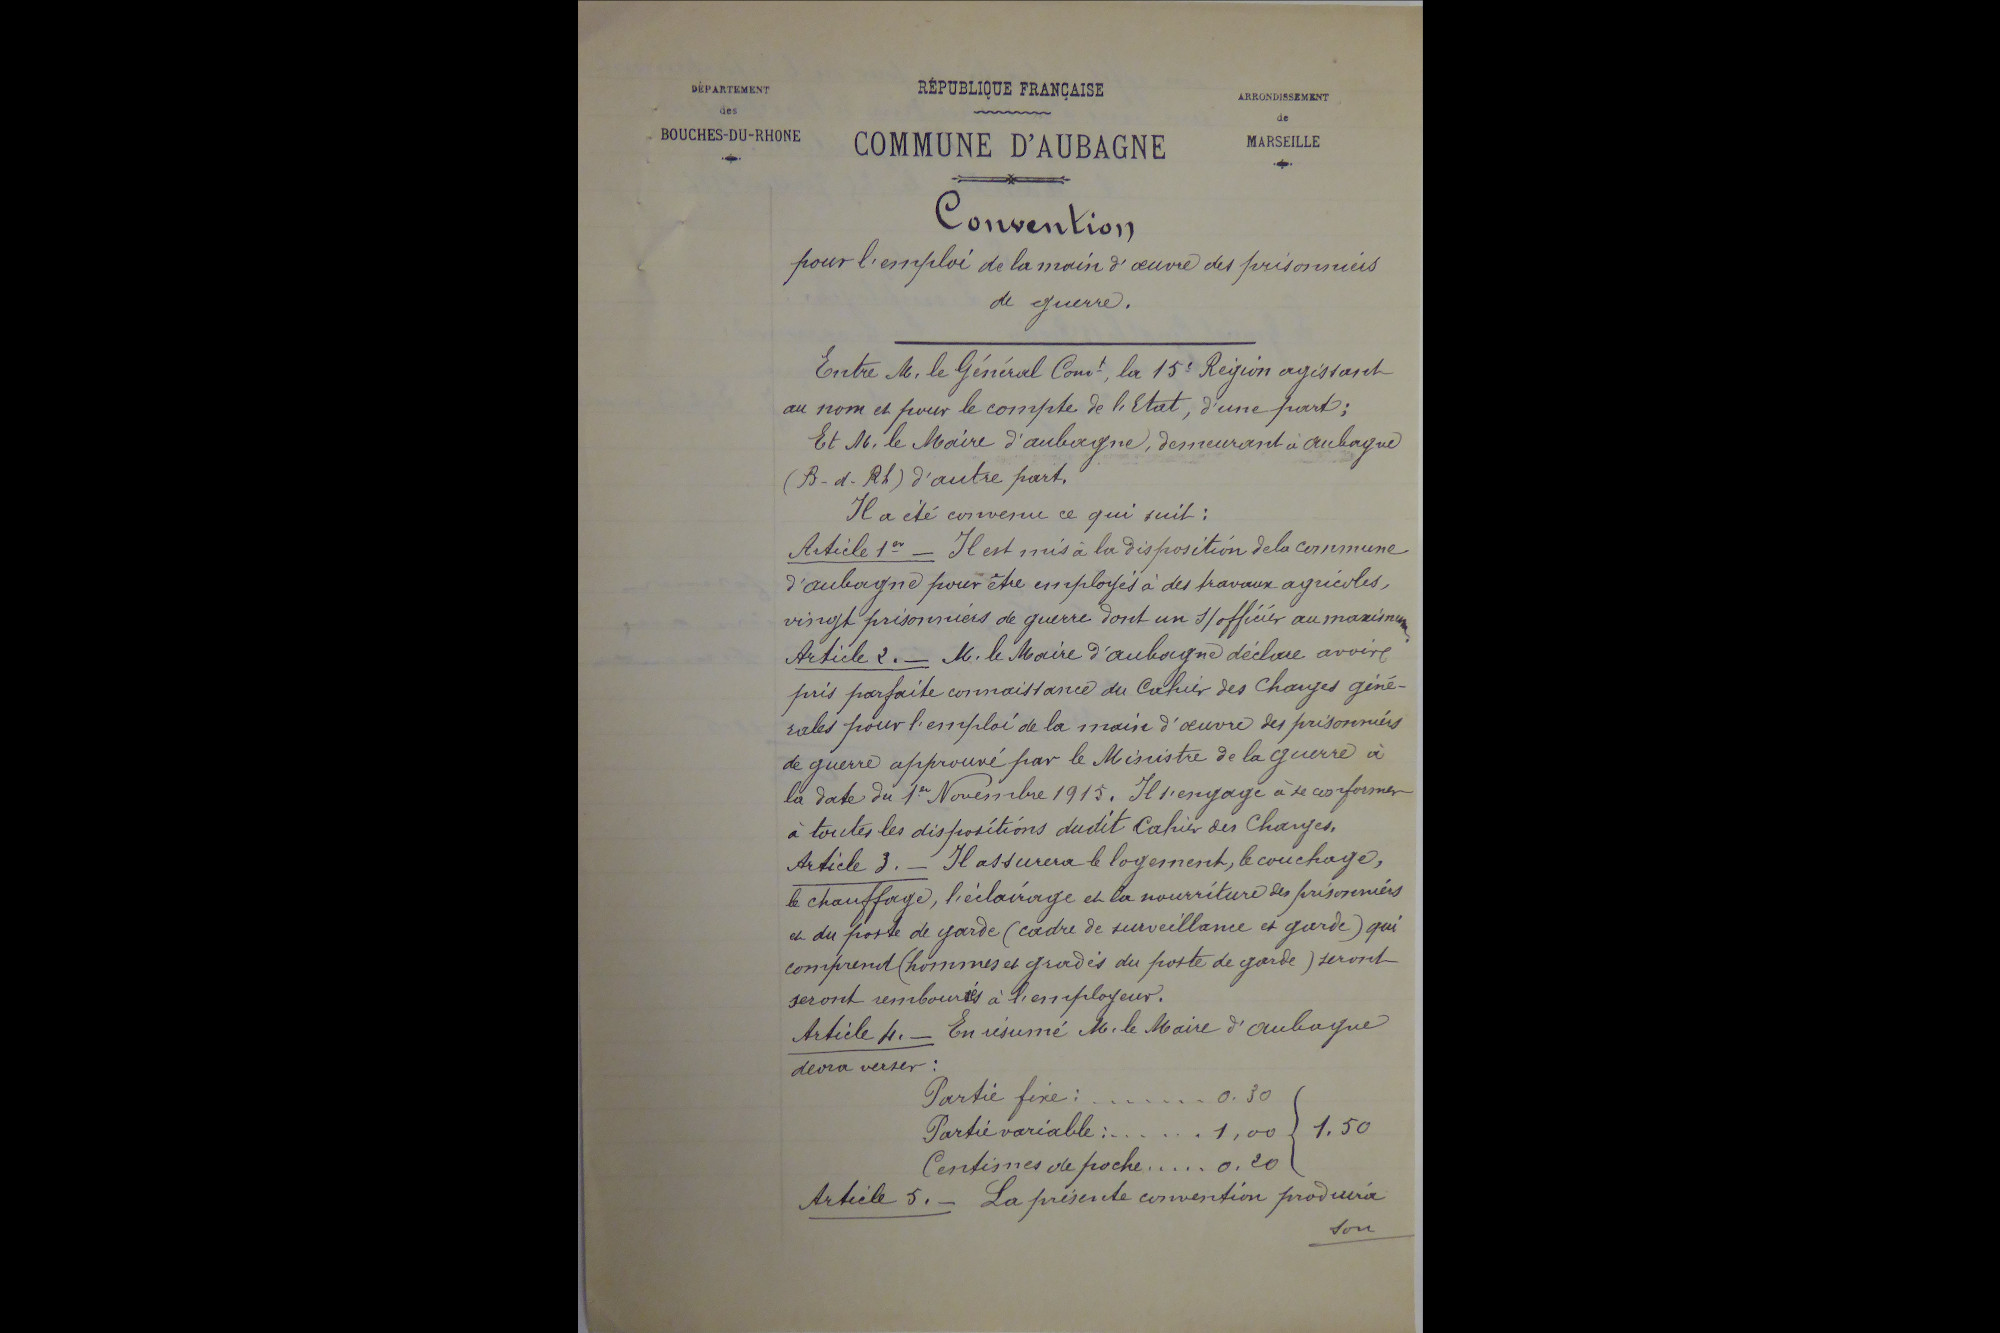 DÉPARTEMENT
des
BOUCHES-DU-RHONE
RÉPUBLIQUE FRANÇAISE
COMMUNE D'AUBAGNE
ARRONDISSEMENT
de
MARSEILLE
Convention
pour l'emploi de la main d'œuvre des prisonniers
de guerre.
Entre M. le Général Comt, la 15e Région agissant
au nom et pour le compte de l'Etat, d'une part;
Et M. le Maire d'aubagne, demeurant à aubagne
(B-d-Rh) d'autre part.
Il a été convenu ce qui suit:
Article 1er — Il est mis à la disposition de la commune
d'aubagne pour être employés à des travaux agricoles,
vingt prisonniers de guerre dont un s/officier au maximum.
Article 2. — M. le Maire d'aubagne déclare avoir
pris parfaite connaissance du Cahier des Charges géné-
rales pour l'emploi de la main d'œuvre des prisonniers
de guerre approuvé par le Ministre de la guerre à
la date du 1er Novembre 1915. Il s'engage à se conformer
à toutes les dispositions dudit Cahier des Charges.
Article 3. — Il assurera le logement, le couchage,
le chauffage, l'éclairage et la nourriture des prisonniers
et du poste de garde (cadre de surveillance et garde) qui
comprend (hommes et gradés du poste de garde) seront
seront remboursés à l'employeur.
Article 4. — En résumé M. le Maire d'aubagne
devra verser:
Partie fixe: ....... 0.30
Partie variable: ...... 1,00 } 1.50
Centimes de poche ..... 0.20
Article 5. — La présente convention produira
son